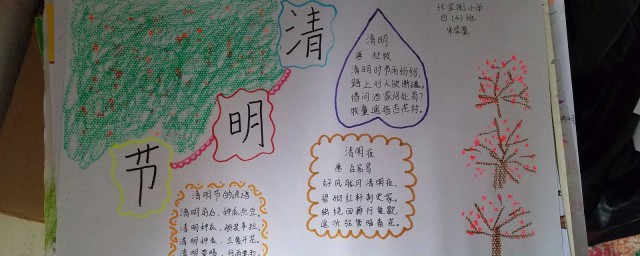 清
明
节
清明
唐 杜牧
清明时节雨纷纷，
路上行人欲断魂。
借问酒家何处有？
牧童遥指杏花村。
清明夜
唐 白居易
好风胧月清明夜，
碧砌红轩刺史家。
独绕回廊行复歇，
遥听弦管暗看花。
清明节的谚语
清明前后，种瓜点豆。
清明种瓜，船装车拉。
清明种瓜，立夏开花。
小学
四（4）班